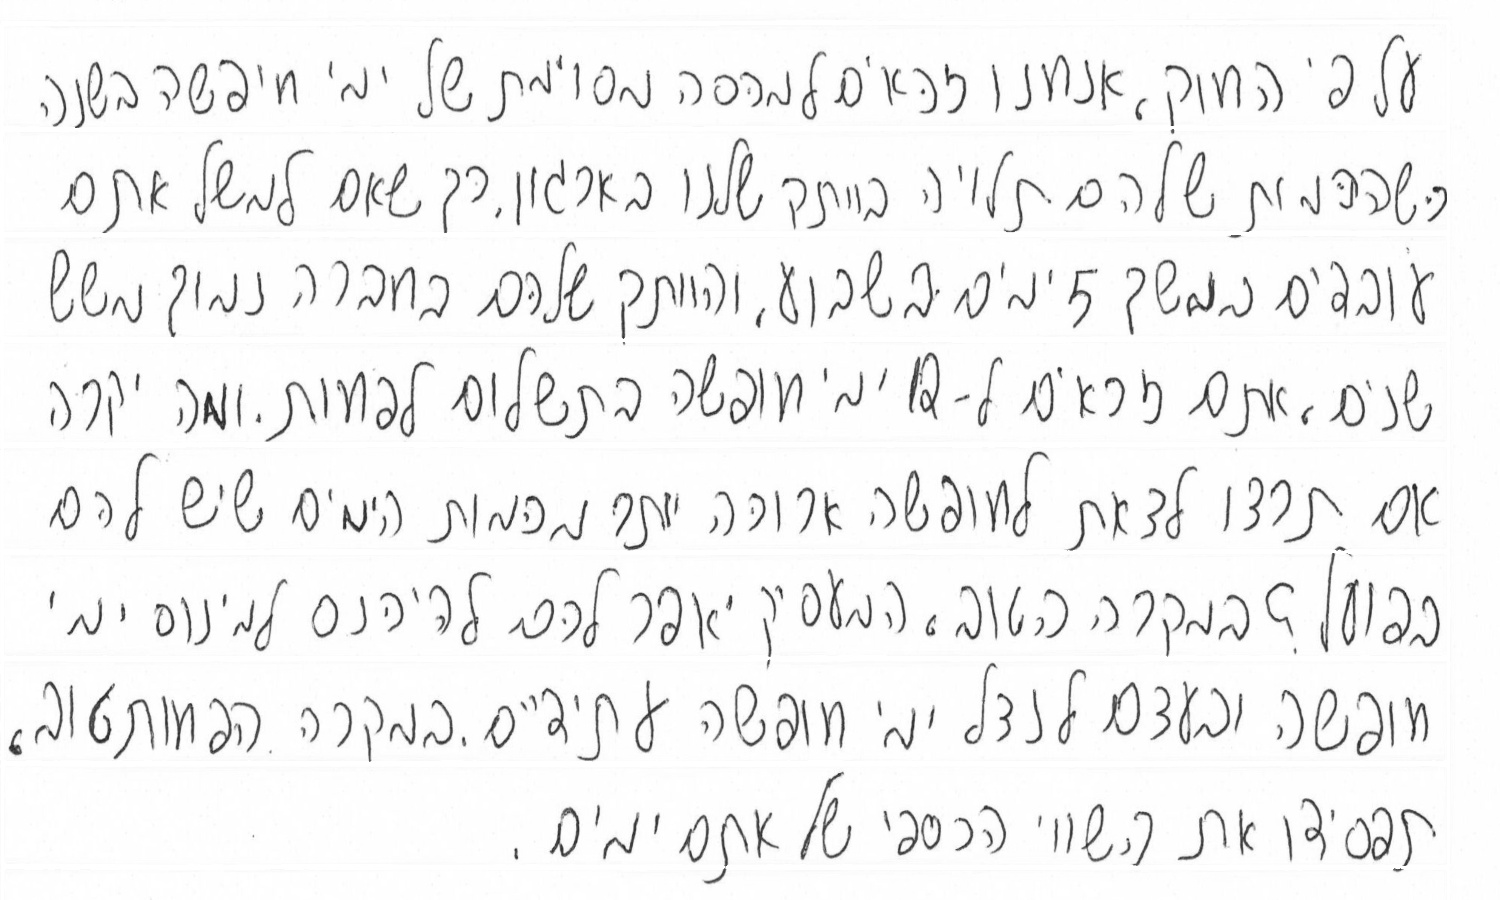 על פי החוק, אנחנו זכאים למכסה מסוימת של ימי חיפשה בשנה
כשהכמות שלהם תלויה בוותק שלנו בארגון. כך שאם למשל אתם
עובדים במשך 5 ימים בשבוע, והוותק שלכם בחברה נמוך משש
שנים, אתם זכאים ל-12 ימי חופשה בתשלום לפחות. ומה יקרה
אם תרצו לצאת לחופשה ארוכה יותר מכמות הימים שיש להם
בפועל? במקרה הטוב, המעסיק יאפר לכם להיכנס למינוס ימי
חופשה ובעצם לנצל ימי חופשה עתידיים. במקרה הפחות טוב,
תפסידו את השווי הכספי של אתם ימים.